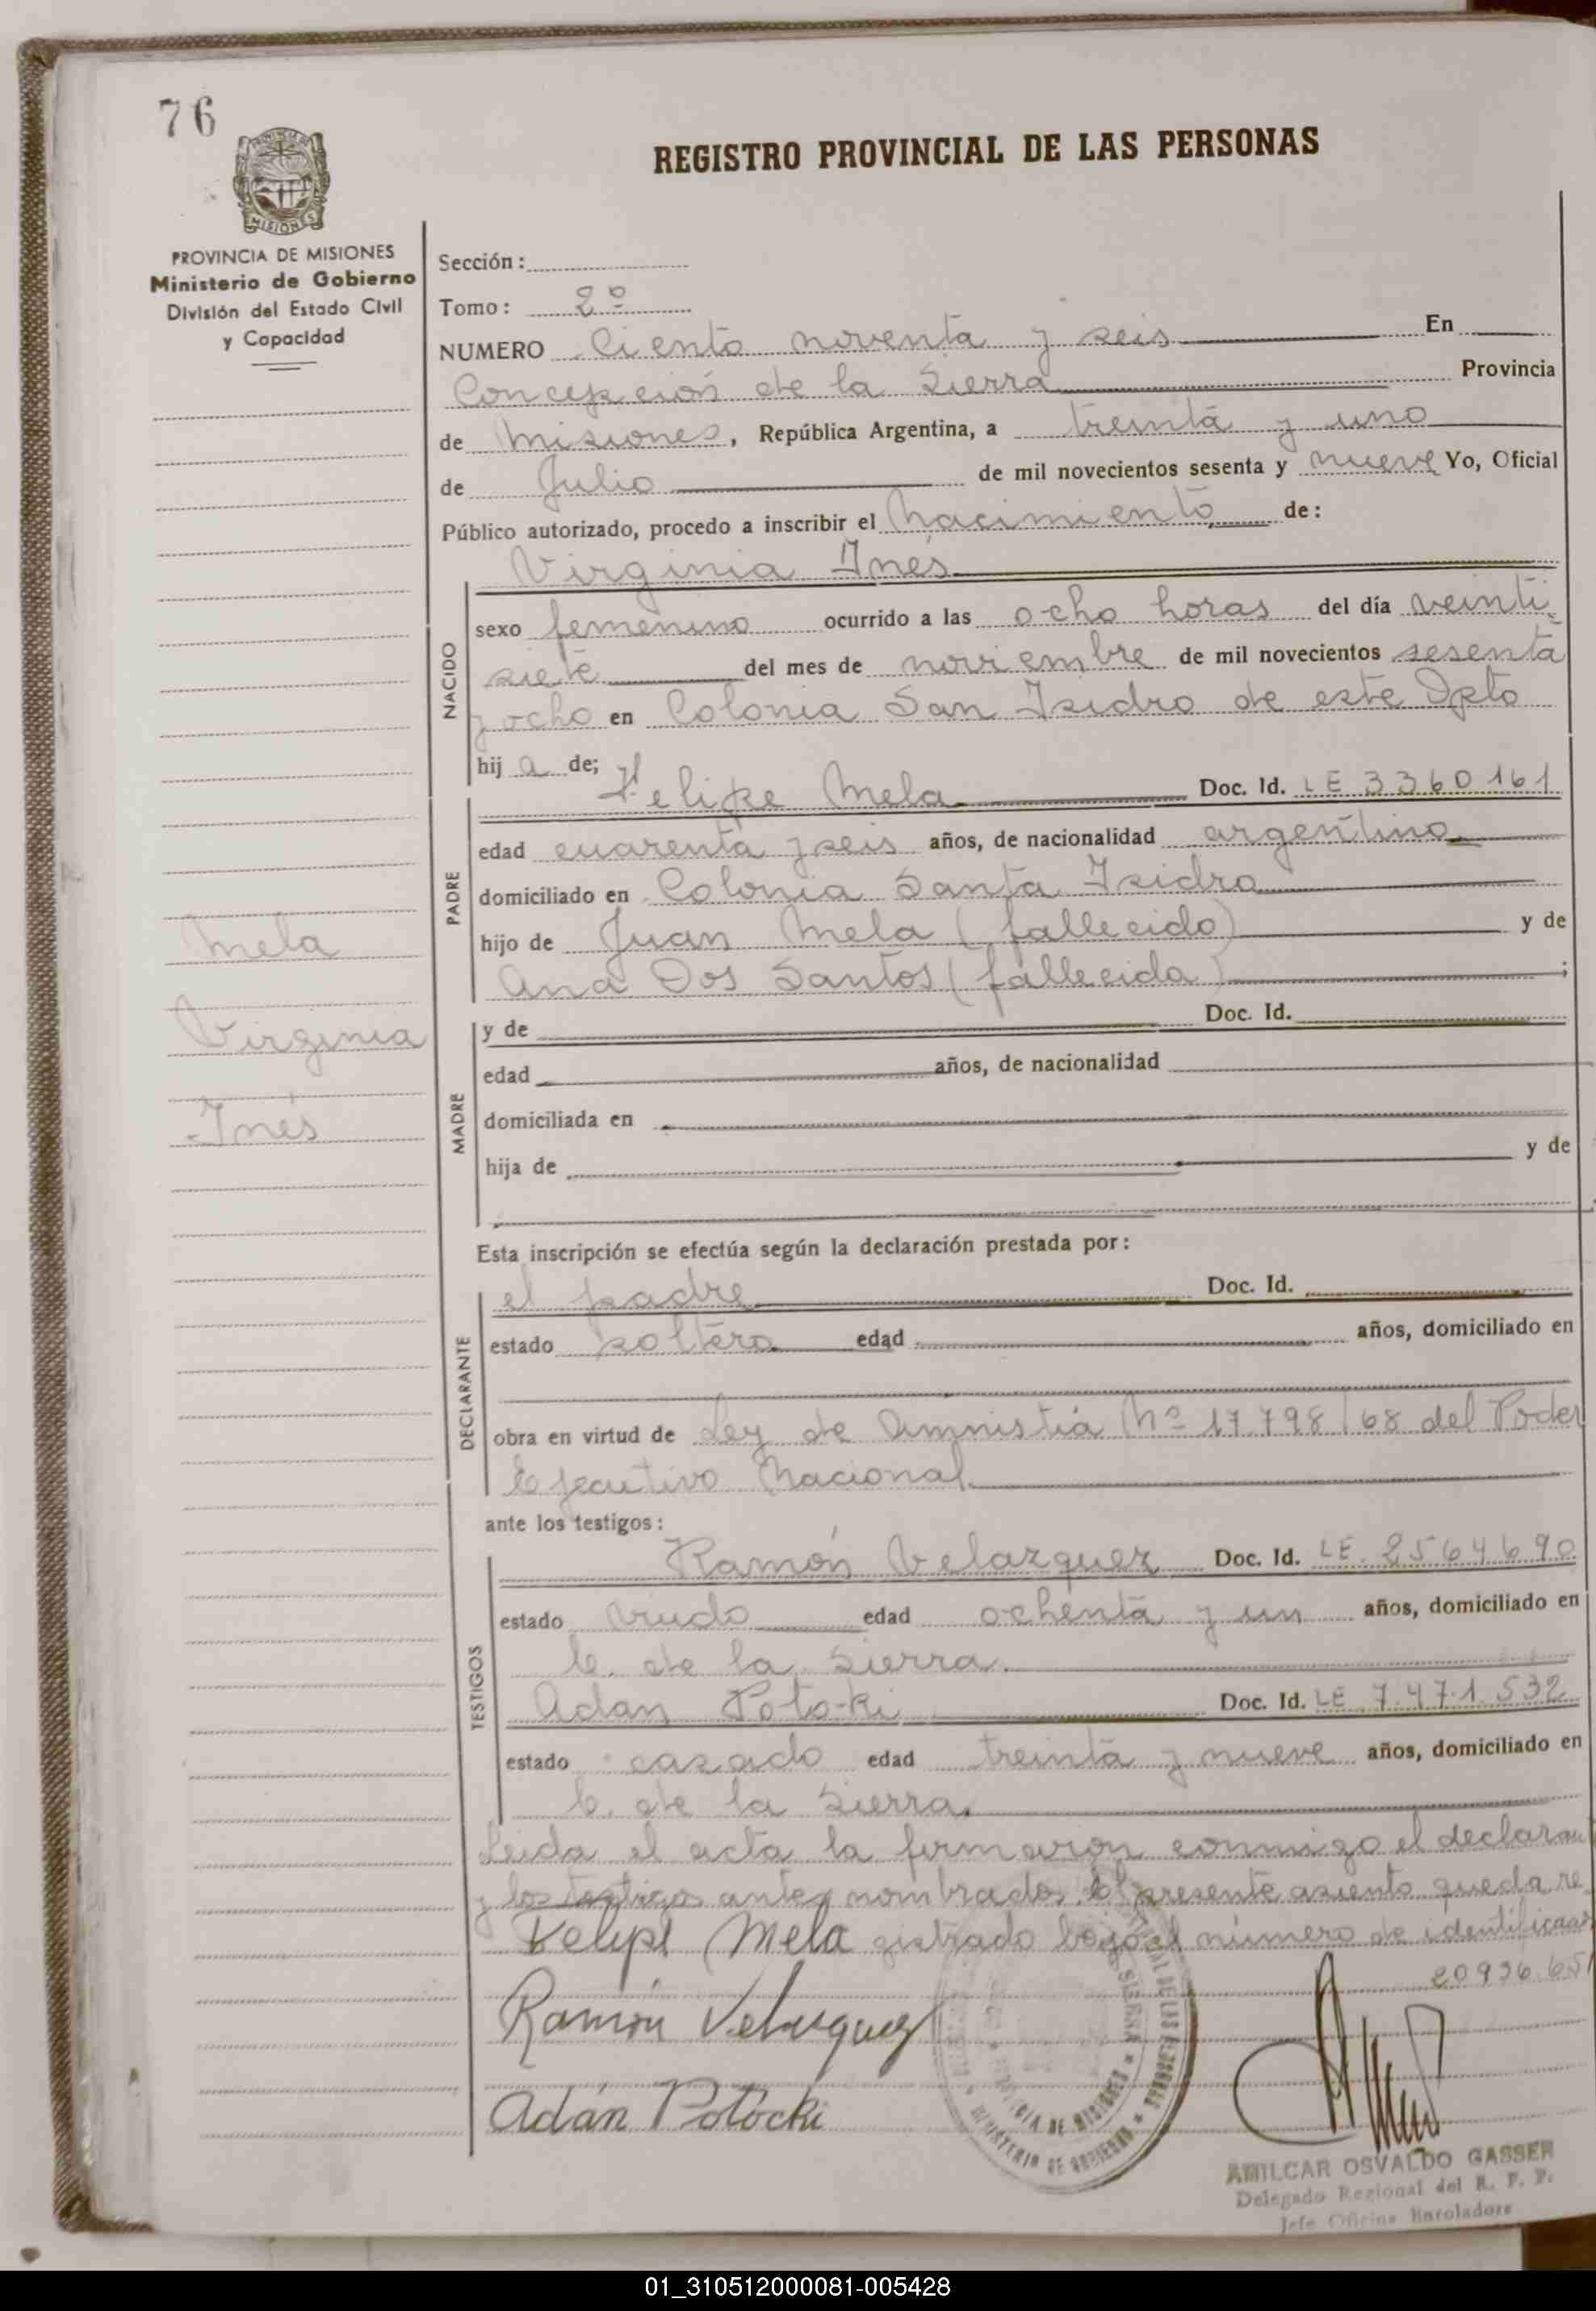 76
REGISTRO PROVINCIAL DE LAS PERSONAS
MISIONES
PROVINCIA DE MISIONES
Ministerio de Gobierno
División del Estado Civil
y Capacidad
Sección:
Tomo: 2º
NUMERO Ciento noventa y seis En
Concepción de la Sierra Provincia
de Misiones, República Argentina, a treinta y uno
de Julio de mil novecientos sesenta y nueve Yo, Oficial
Público autorizado, procedo a inscribir el Nacimiento de:
Virginia Inés
NACIDO
sexo femenino ocurrido a las ocho horas del día veinti
siete del mes de noviembre de mil novecientos sesenta
y ocho en Colonia San Isidro de este Dpto
hija de;
PADRE
Felipe Mela Doc. Id. LE 3360161
edad cuarenta y seis años, de nacionalidad argentino
domiciliado en Colonia Santa Isidra
hijo de Juan Mela (fallecido) y de
Ana Dos Santos (fallecida) ;
Mela
Virginia
Inés
MADRE
y de Doc. Id.
edad años, de nacionalidad
domiciliada en
hija de y de
Esta inscripción se efectúa según la declaración prestada por:
DECLARANTE
el padre Doc. Id.
estado soltero edad años, domiciliado en
obra en virtud de Ley de Amnistía Nº 17.798/68 del Poder
Ejecutivo Nacional
ante los testigos:
TESTIGOS
Ramón Velazquez Doc. Id. LE. 2564690
estado viudo edad ochenta y un años, domiciliado en
C. de la Sierra.
Adan Potoki Doc. Id. LE 7.471.532
estado casado edad treinta y nueve años, domiciliado en
C. de la Sierra.
Leida el acta la firmaron conmigo el declaran
y los testigos antes nombrados. El presente asiento queda re
Felipe Mela gistrado bajo el número de identificac
20936.651
Ramón Velazquez
Adán Potocki
PROVINCIA DE MISIONES
MINISTERIO DE GOBIERNO
AMILCAR OSVALDO GASSER
Delegado Regional del R. P. P.
Jefe Oficina Enroladora
01_310512000081-005428